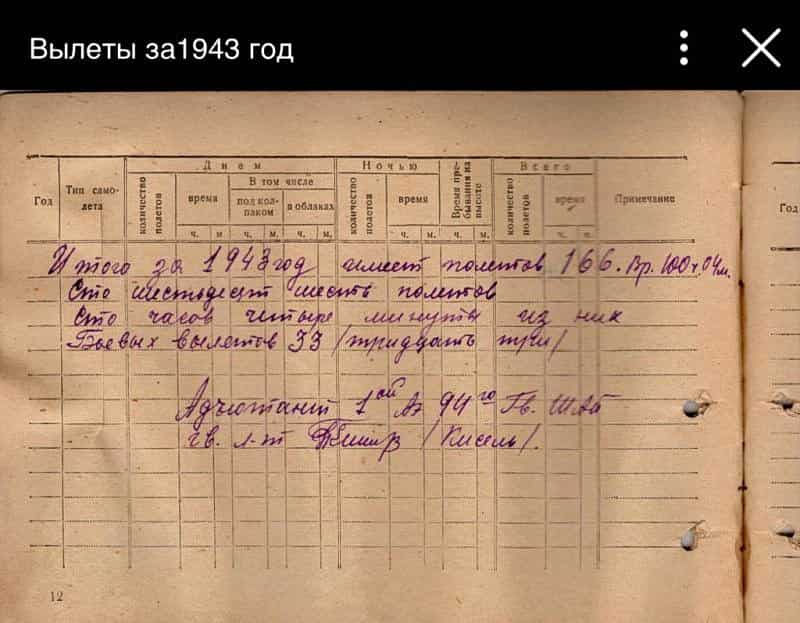 Вылеты за1943 год
Днем Ночью Всего
Год Тип само-лета количество полетов время В том числе количество полетов время Время пре-бывания на высоте количество полетов время Примечание Год
под кол-паком в облаках
ч. м ч. м. ч. м. ч. м. ч. м. ч. м.
Итого за 1943 год имеет полетов 166. Вр. 100 ч. 04 м.
Сто шестьдесят шесть полетов
Сто часов четыре минуты из них
Боевых вылетов 33 /тридцать три/
Адъютант 1ой Аэ 94го Гв. ШАП
гв. л-т /Кисель/.
12